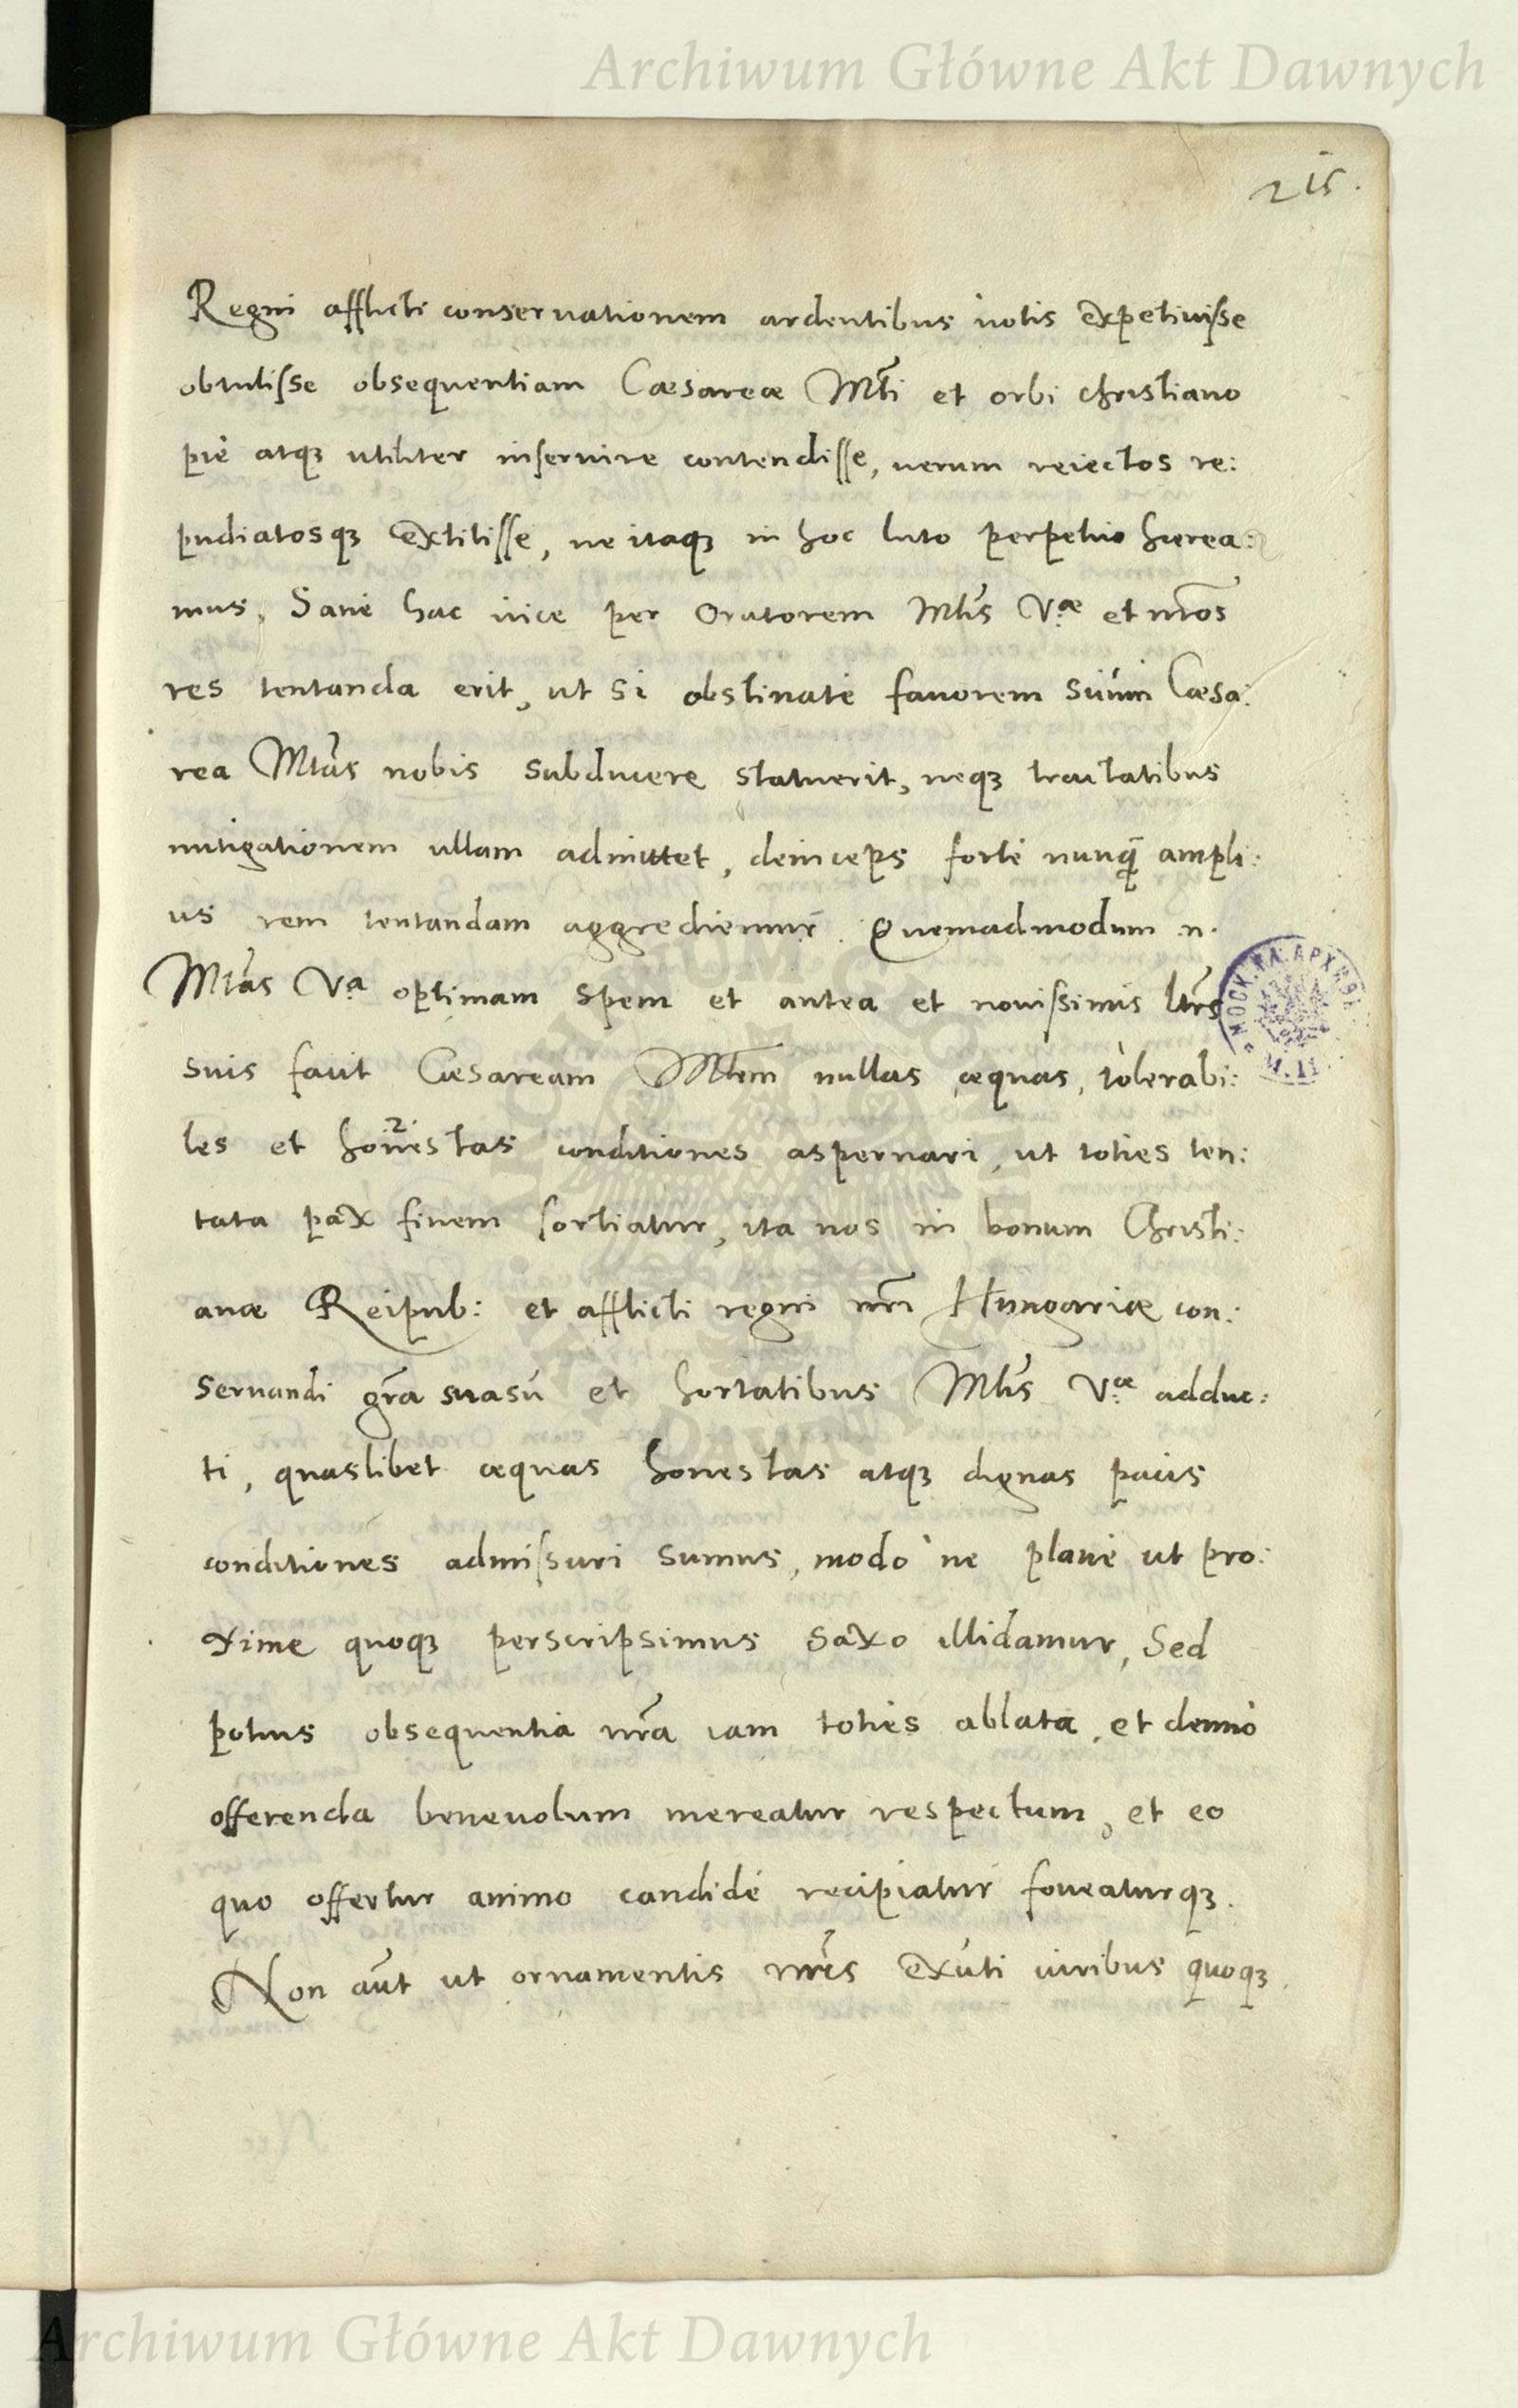 Archiwum Główne Akt Dawnych
215.
Regni afflicti conseruationem ardentibus uotis expetiuisse
obtulisse obsequentiam Caesareae Mti et orbi christiano
piè atqȝ vtiliter inseruire contendisse, uerum reiectos re:
pudiatosqȝ extitisse, ne itaqȝ in hoc luto perpetuo haerea:
mus, Sanè hac uice per Oratorem Mtis V.ae et nros
res tentanda erit, ut si obstinatè fauorem suum Caesa:
rea Mtas nobis subducere statuerit, neqȝ tractatibus
mitigationem ullam admittet, deinceps fortè nunq̃ ampli:
us rem tentandam aggrediemur. Quemadmodum .n.
Mtas V.a optimam spem et antea et nouissimis lris
suis facit Caesaream Mtem nullas aequas, tolerabi:
les et honestas conditiones aspernari, ut toties ten:
tata pax finem sortiatur, ita nos in bonum Christi:
anae Reipub: et afflicti regni nri Hungariae con:
seruandi gra suasu et hortatibus Mtis V.ae adduc:
ti, quaslibet aequas honestas atqȝ dignas pacis
conditiones admissuri sumus, modò ne planè ut pro:
xime quoqȝ perscripsimus saxo illidamur, Sed
potius obsequentia nra iam toties ablata, et denuò
offerenda beneuolum mereatur respectum, et eo
quo offertur animo candidè recipiatur foueaturqȝ.
Non aut ut ornamentis nris exuti uiribus quoqȝ
Archiwum Główne Akt Dawnych